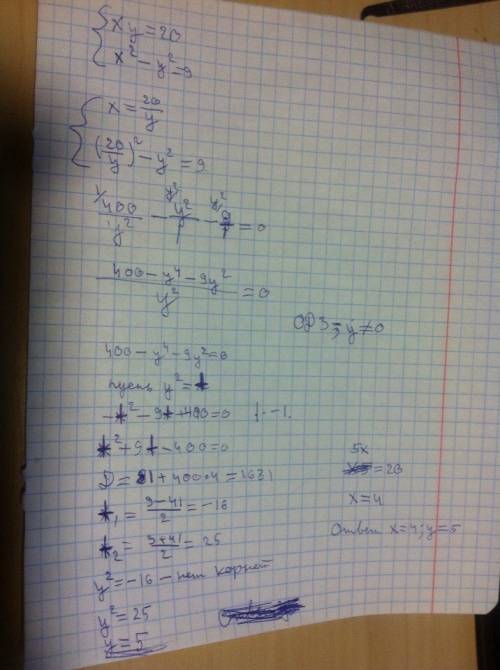 xy=20
x²-y²=9
x=20/y
(20/y)²-y²=9
400/y² - y²/1 - 9/1 = 0
(400-y⁴-9y²)/y² = 0
ОДЗ: y≠0
400-y⁴-9y²=0
пусть y²=t
-t²-9t+400=0 |·-1.
t²+9t-400=0
D=81+400·4=1681
t₁=(9-41)/2=-16
t₂=(9+41)/2=25
y²=-16-нет корней
y²=25
y=5
5x=20
x=4
Ответ x=4; y=5